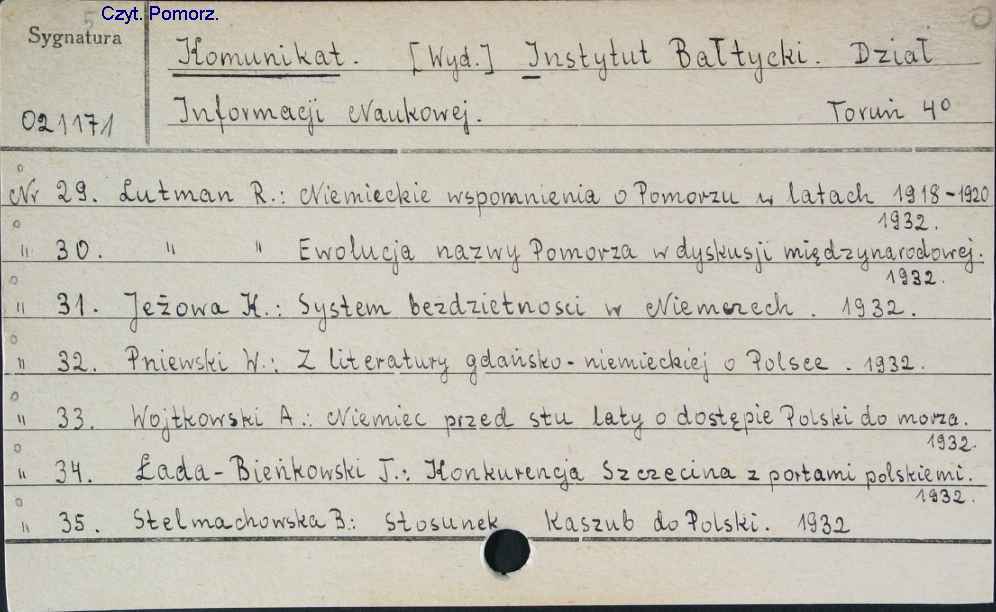 Czyt. Pomorz.
Sygnatura
021171
Komunikat. [Wyd.] Instytut Bałtycki. Dział
Informacji Naukowej. Toruń 4°
Nr 29. Lutman R.: Niemieckie wspomnienia o Pomorzu w latach 1918-1920
1932.
" 30. " " Ewolucja nazwy Pomorza w dyskusji międzynarodowej.
1932.
" 31. Jeżowa K.: System bezdzietnosci w Niemczech. 1932.
" 32. Pniewski W.: Z literatury gdańsko-niemieckiej o Polsce. 1932.
" 33. Wojtkowski A.: Niemiec przed stu laty o dostępie Polski do morza.
1932.
" 34. Łada-Bieńkowski J.: Konkurencja Szczecina z portami polskiemi.
1932.
" 35. Stelmachowska B.: Stosunek Kaszub do Polski. 1932